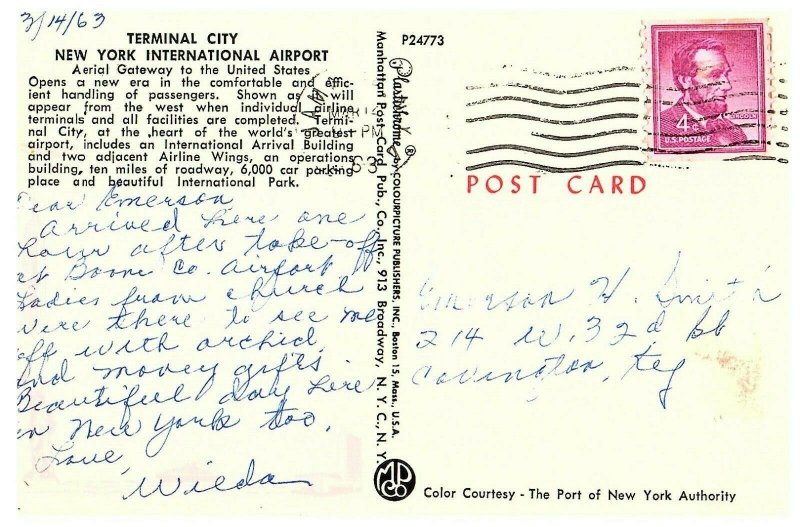 3/14/63
TERMINAL CITY
NEW YORK INTERNATIONAL AIRPORT
Aerial Gateway to the United States
Opens a new era in the comfortable and effic-
ient handling of passengers. Shown as it will
appear from the west when individual airline
terminals and all facilities are completed. Termi-
nal City, at the heart of the world's greatest
airport, includes an International Arrival Building
and two adjacent Airline Wings, an operations
building, ten miles of roadway, 6,000 car parking
place and beautiful International Park.
Dear Emerson
Arrived here one
hour after take-off
at Boone Co. Airport
Ladies from church
were there to see me
off with orchid
and money gifts.
Beautiful day here
in New York too.
Love,
Wilda
P24773
Plastichrome ® by COLOURPICTURE PUBLISHERS, INC., Boston 15, Mass., U.S.A.
Manhattan Post Card Pub. Co., Inc., 913 Broadway, N. Y. C., N. Y.
MAR 14
PM
63
4¢
LINCOLN
U.S. POSTAGE
POST CARD
Emerson H. Smith
214 W. 32d
Covington, Ky
MPCo
Color Courtesy - The Port of New York Authority